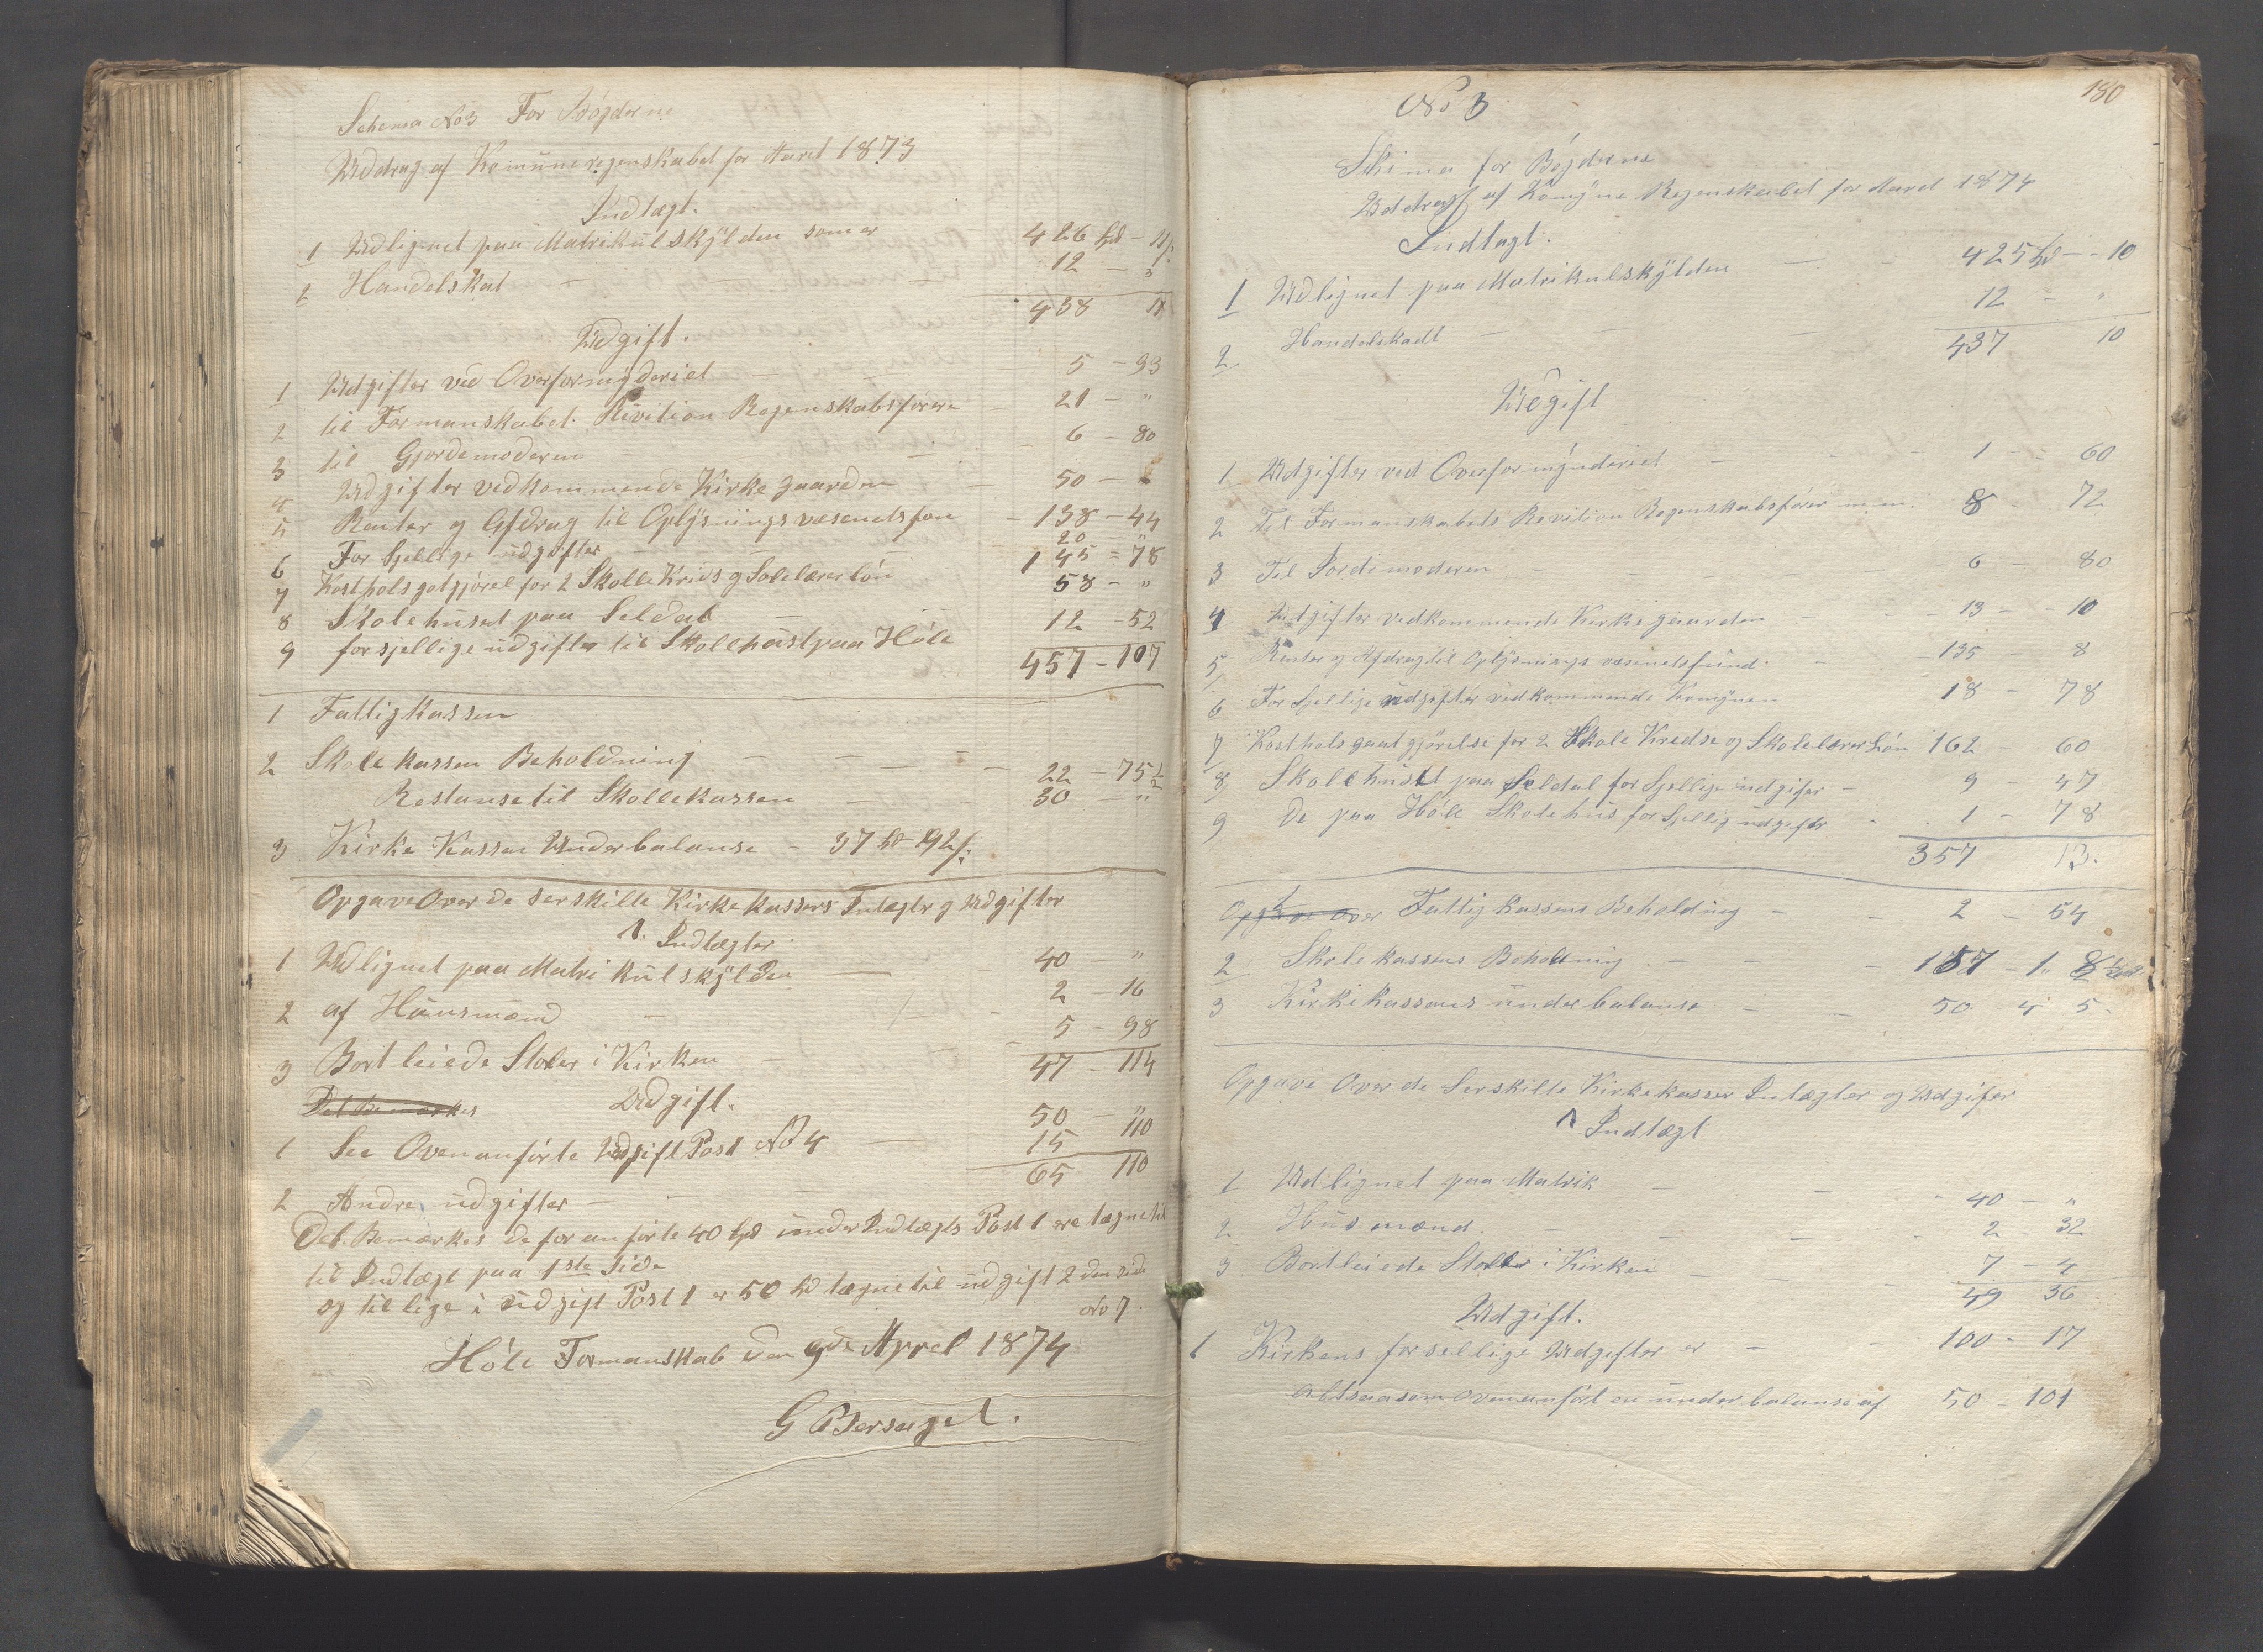 Schema No 3 For Bøgderne
Uddrag af Komuneregenskabet for Aaret 1873
Indtægt.
1 Udlignet paa Matrikulskylden som er 426 Spd - 11 s.
2 Handelskat - 12 - "
438 11
Udgift.
1 Udgifter ved Overformynderiet 5 - 93
2 til Formanskabet Rivition Regenskabsførere 21 - "
3 til Gjordemoderen 6 - 80
4 Udgifter vedkommende Kirkegaarden 50 -
5 Renter og Afdrag til Oplysningsvæsenets fon 138 - 44
6 For Sjellige udgifter 20 - "
7 Kostholsgotgjørel for 2 Skolle Krids og Solelærerløn 145 = 78
8 Skolehuset paa Seldal 58 - "
9 forsjellige udgifter til Skollehust paa Høle 12 - 52
457 - 107
1 Fattigkassen
2 Skolekassen Beholdning 22 - 75½
Restanse til Skollekassen 30 "
3 Kirke Kassen Underbalanse - 37 Spd 92 s.
Opgave Over de serskilte Kirkekassers Intægter og Udgifter
1. Indtægter
1 Udlignet paa Matrikulskylden 40 - "
2 af Hausmænd 2 - 16
3 Bortleiede Stoler i Kirken 5 - 98
47 - 114
Det Bemærkes Udgift.
1 See Ovenanførte Udgift Post No 4 50 - "
2 Andre udgifter 15 110
65 110
Det Bemærkes de foranførte 40 Spd under Indtægts Post 1 ere tagne til
til Indtægt paa 1ste side
og tillige i Udgift Post 1 er 50 Spd tagne til udgift 2 den side
No 7.
Høle Formanskab den 9de Aprel 1874
G Bersagel.
180
No 3
Skima for Bøgderne
Uddragt af Komyne Regenskabet for Aaret 1874
Indtagt.
1 Udlignet paa Matrikulskylden 425 Spd - 10
2 Handelskadt 12 - "
437 10
Udgift
1 Udgifter ved Overformynderiet 1 - 60
2 Til Formanskabets Revition Regenskabsfører m.m. 8 - 72
3 Til Jordemoderen 6 - 80
4 Udgifter vedkommende Kirkegaarden 13 - 10
5 Renter og Afdrag til Oplysnings væsenetsfund 135 - 8
6 For Sjellige udgifter vedkommende Komynen 18 - 78
7 Kostholsgaatgjørelse for 2 Skole Kredse og Skolelærer Løn 162 - 60
8 Skolehuset paa Seldal for Sjellige udgifer 9 - 47
9 De paa Høle Skolehus for Sjellig udgifter 1 - 78
357 13.
Opgave over 1 Fattig Kassens Beholding 2 - 54
2 Skole kassens Beholtning 157 - 1 " 8
3 Kirke Kassens underbalanse 50 4 5.
Opgave Over de Serskilte Kirkekasser Intægter og Udgifer
1 Indtægt
1 Udlignet paa Matrik 40 - "
2 Husmænd. 2 - 32
3 Bortleiede Stoler i Kirken 7 - 4
49 36
Udgift.
1 Kirkens forsellige Udgifter er 100 - 17
altsaasom ovenanført en underbalanse af 50 - 101